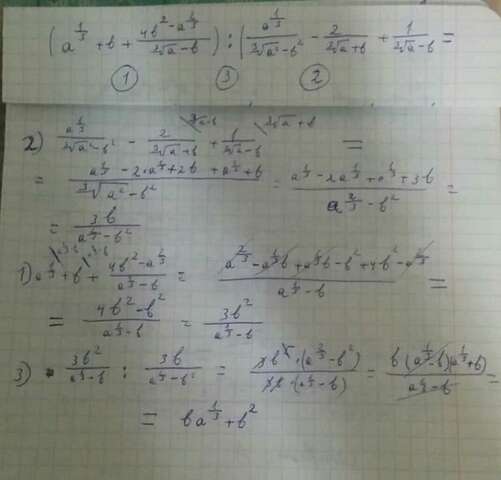 (a^{1/3} + b + \frac{4b^2 - a^{2/3}}{\sqrt[3]{a} - b}) : (\frac{a^{1/3}}{\sqrt[3]{a^2} - b^2} - \frac{2}{\sqrt[3]{a} + b} + \frac{1}{\sqrt[3]{a} - b} =
① ③ ②
2) \frac{a^{1/3}}{\sqrt[3]{a^2} - b^2} - \frac{2}{\sqrt[3]{a} + b}^{\sqrt[3]{a} - b} + \frac{1}{\sqrt[3]{a} - b}^{\sqrt[3]{a} + b} =
= \frac{a^{1/3} - 2 \cdot a^{1/3} + 2b + a^{1/3} + b}{\sqrt[3]{a^2} - b^2} = \frac{a^{1/3} - 2a^{1/3} + a^{1/3} + 3b}{a^{2/3} - b^2} =
= \frac{3b}{a^{2/3} - b^2}
1) a^{1/3} + b + \frac{4b^2 - a^{2/3}}{a^{1/3} - b} = \frac{a^{2/3} - a^{1/3}b + a^{1/3}b - b^2 + 4b^2 - a^{2/3}}{a^{1/3} - b} =
= \frac{4b^2 - b^2}{a^{1/3} - b} = \frac{3b^2}{a^{1/3} - b}
3) \frac{3b^2}{a^{1/3} - b} : \frac{3b}{a^{2/3} - b^2} = \frac{3b^2 \cdot (a^{2/3} - b^2)}{3b \cdot (a^{1/3} - b)} = \frac{b(a^{1/3} - b)(a^{1/3} + b)}{a^{1/3} - b} =
= ba^{1/3} + b^2